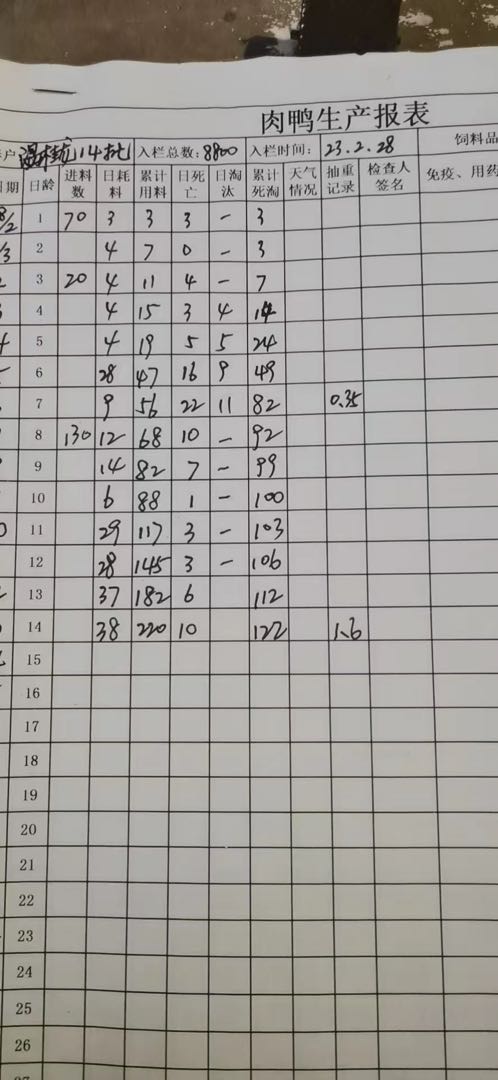 肉鸭生产报表
户 14批 入栏总数:8800 入栏时间: 23.2.28 饲料品
日期 日龄 进料数 日耗料 累计用料 日死亡 日淘汰 累计死淘 天气情况 抽重记录 检查人签名 免疫、用药
/2 1 70 3 3 3 - 3
/3 2 4 7 0 - 3
3 20 4 11 4 - 7
4 4 15 3 4 14
5 4 19 5 5 24
6 28 47 16 9 49
7 9 56 22 11 82 0.35
8 130 12 68 10 - 92
9 14 82 7 - 99
10 6 88 1 - 100
11 29 117 3 - 103
12 28 145 3 - 106
13 37 182 6 112
14 38 220 10 122 1.6
15
16
17
18
19
20
21
22
23
24
25
26